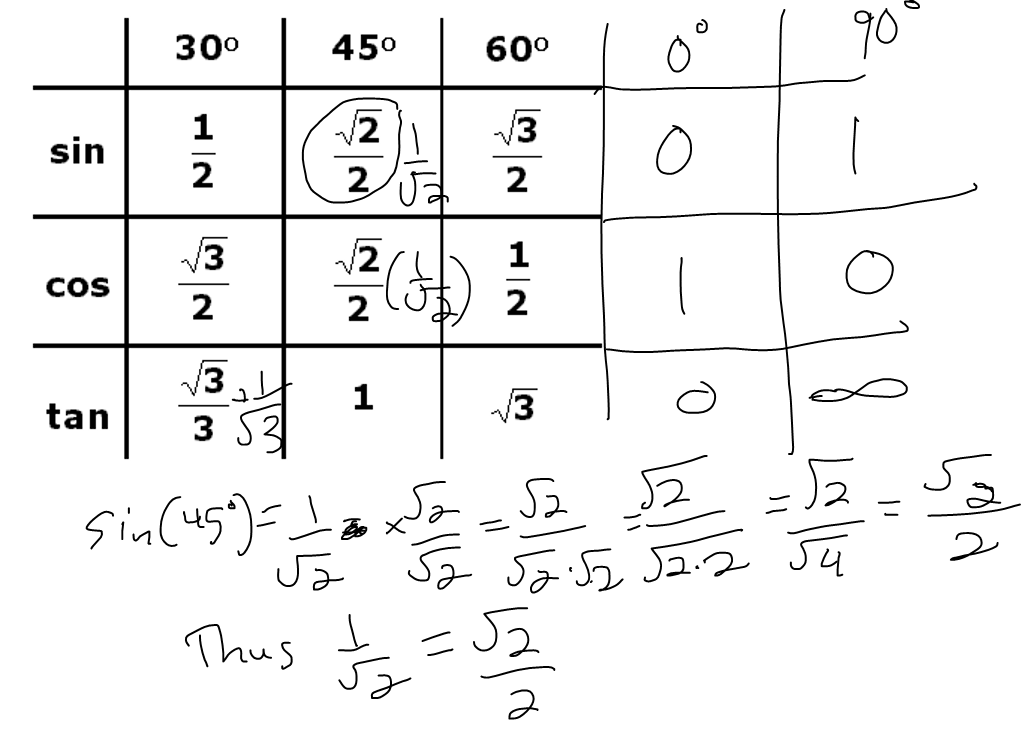 30° 45° 60° 0° 90°
sin 1/2 √2/2 1/√2 √3/2 0 1
cos √3/2 √2/2 (1/√2) 1/2 1 0
tan √3/3 1/√3 1 √3 0 ∞
sin(45°) = 1/√2 × √2/√2 = √2/√2·√2 = √2/√2·2 = √2/√4 = √2/2
Thus 1/√2 = √2/2